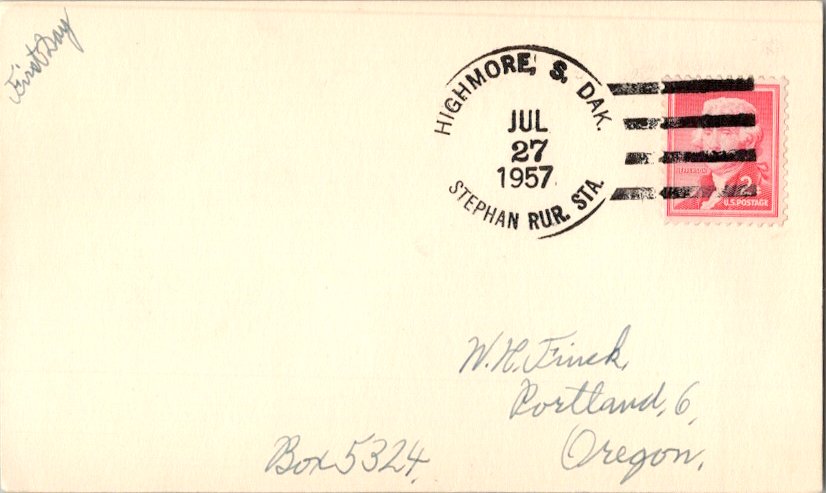 First Day
HIGHMORE, S. DAK.
JUL
27
1957
STEPHAN RUR. STA.
JEFFERSON
2¢
U.S. POSTAGE
W. H. Finck,
Portland, 6,
Oregon.
Box 5324.